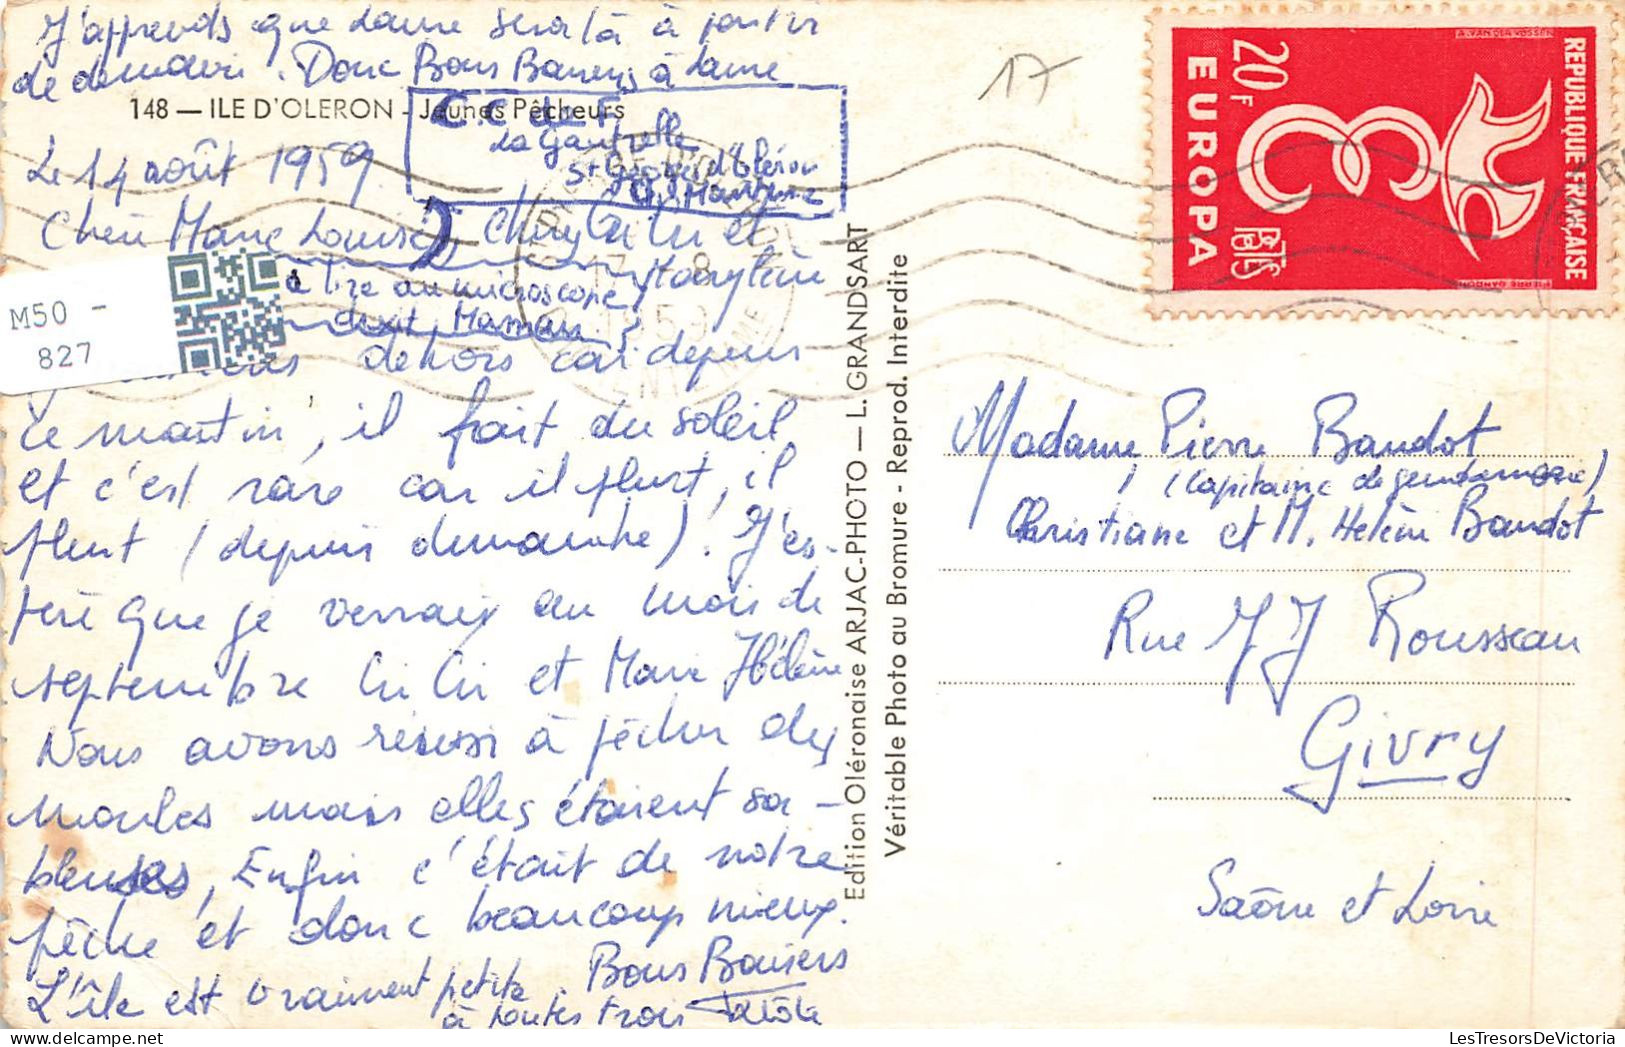 J'apprends que Laure sera là à partir
de demain. Donc Bons Baisers à Laure
148 — ILE D'OLERON - Jeunes Pêcheurs
La Gautrelle
St Georges d'Oléron
Le 14 août 1959
Chère Marie Louise, Chery Cri Cri et
Marylène
à lire au microscope
dixit Maman
dehors car depuis
ce matin, il fait du soleil,
et c'est rare car il pleut, il
pleut (depuis dimanche). J'es-
père que je verrais au mois de
septembre Cri Cri et Marie Hélène
Nous avons réussi à pêcher des
moules mais elles étaient sa-
bleuses, Enfin c'était de notre
pêche et donc beaucoup mieux.
L'île est vraiment petite. Bons Baisers
à toutes trois
Edition Oléronaise ARJAC-PHOTO — L. GRANDSART
Véritable Photo au Bromure - Reprod. Interdite
17
REPUBLIQUE FRANÇAISE
POSTES
20F
EUROPA
A. VAN DER VOSSEN
PIERRE GANDON
17 - 8
Madame Pierre Baudot
(Capitaine de gendarmerie)
Christiane et M. Hélène Baudot
Rue JJ Rousseau
Givry
Saône et Loire
M50 -
827
LesTresorsDeVictoria.com